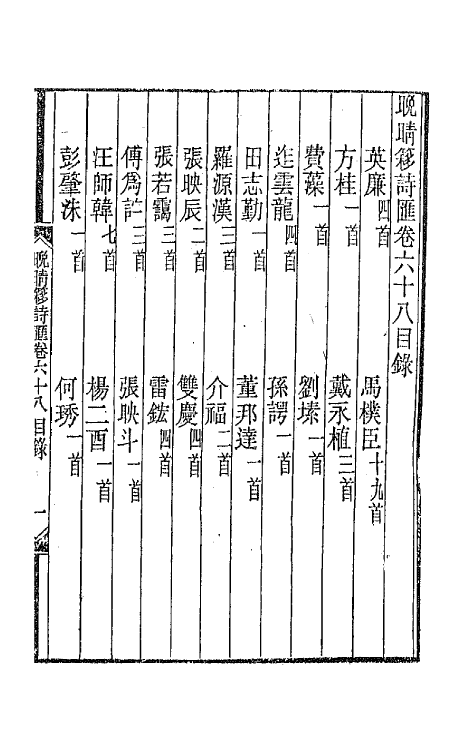 晩晴簃詩匯卷六十八目錄
英廉四首　馬樸臣十九首
方桂一首　戴永植三首
費藻一首　劉埥一首
迮雲龍四首　孫諤一首
田志勤一首　董邦達一首
羅源漢三首　介福二首
張映辰二首　雙慶四首
張若靄三首　雷鋐四首
傅爲詝三首　張映斗一首
汪師韓七首　楊二酉一首
彭肇洙一首　何琇一首
晩晴簃詩匯卷六十八　目錄　一